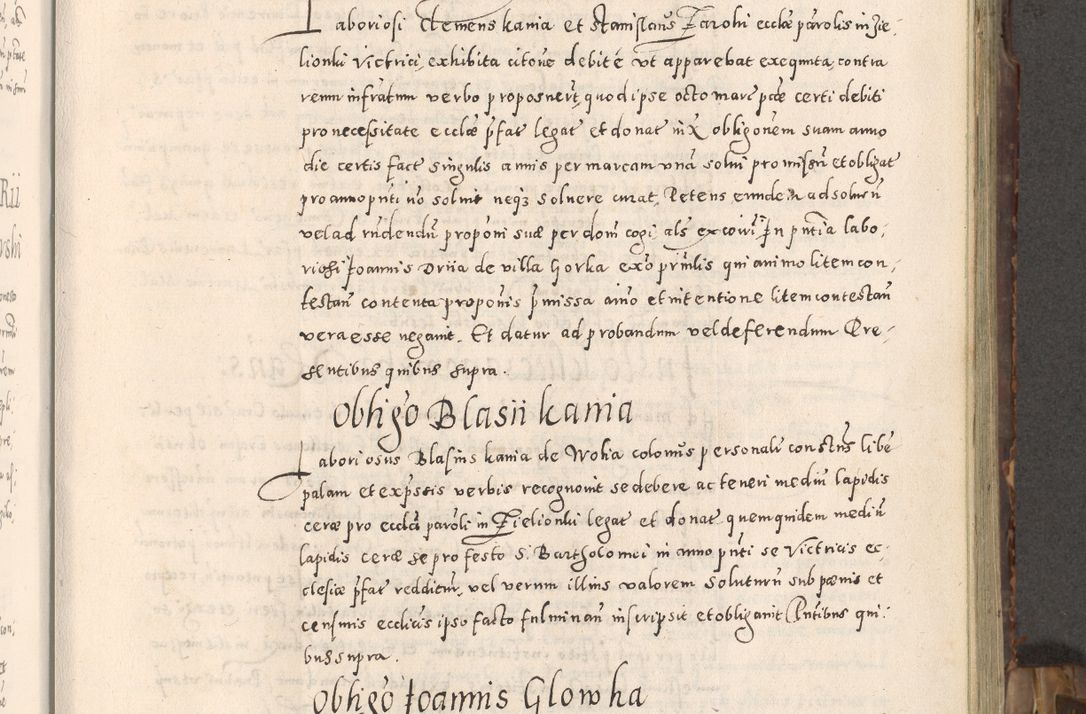 Laboriosi Clemens kania et Stanislaus Zarohi eccłæ parolis in Zie-
lionki Victrici exhibita citōne debite vt apparebat exequuta, contra
reum infratum verbo proposuert̃, quod ipse octo marc̃ pcæ certi debiti
pro necessitate eccłæ pfat̃ legat̃ et donat̃ iux̃ obligōnem suam anno
die certis fact̃ singulis annis per marcam vnã solui promissũ et obligat̃
pro anno pn̄ti nō soluit neq; soluere curat, Petens eundem ad soluen̄
vel ad rn̄dendũ proponi suæ per dom̄ cogi, als excoĩri Jn pn̄tia labo-
riosi Joannis Driia de villa Gorka ex̃o prm̄lis qui animo litem con-
testañ contenta proponis p̄missa aĩo et intentione litem contestañ
vera esse negauit. Et datur ad probandum vel deferendum Pre-
sentibus quibus supra.
Obligõ Blasii kania
Laboriosus Blasius kania de Wolia colonus personalr̃ constus̃ libe
palam et exp̄ssis verbis recognouit se debere ac teneri mediũ lapidis
ceræ pro ecclia paroli in Zielionki legat̃ et donat̃ quem quidem mediũ
lapidis ceræ se pro festo S. Bartholomei in anno pn̄ti se Victricis ec-
clesiæ pfat̃ reddierũ, vel verum illius valorem soluturũ sub pœnis et
censuris ecclicis ipso facto fulminañ inscripsit et obligauit Pn̄tibus qui-
bus supra.
Obligõ Joannis Glowka